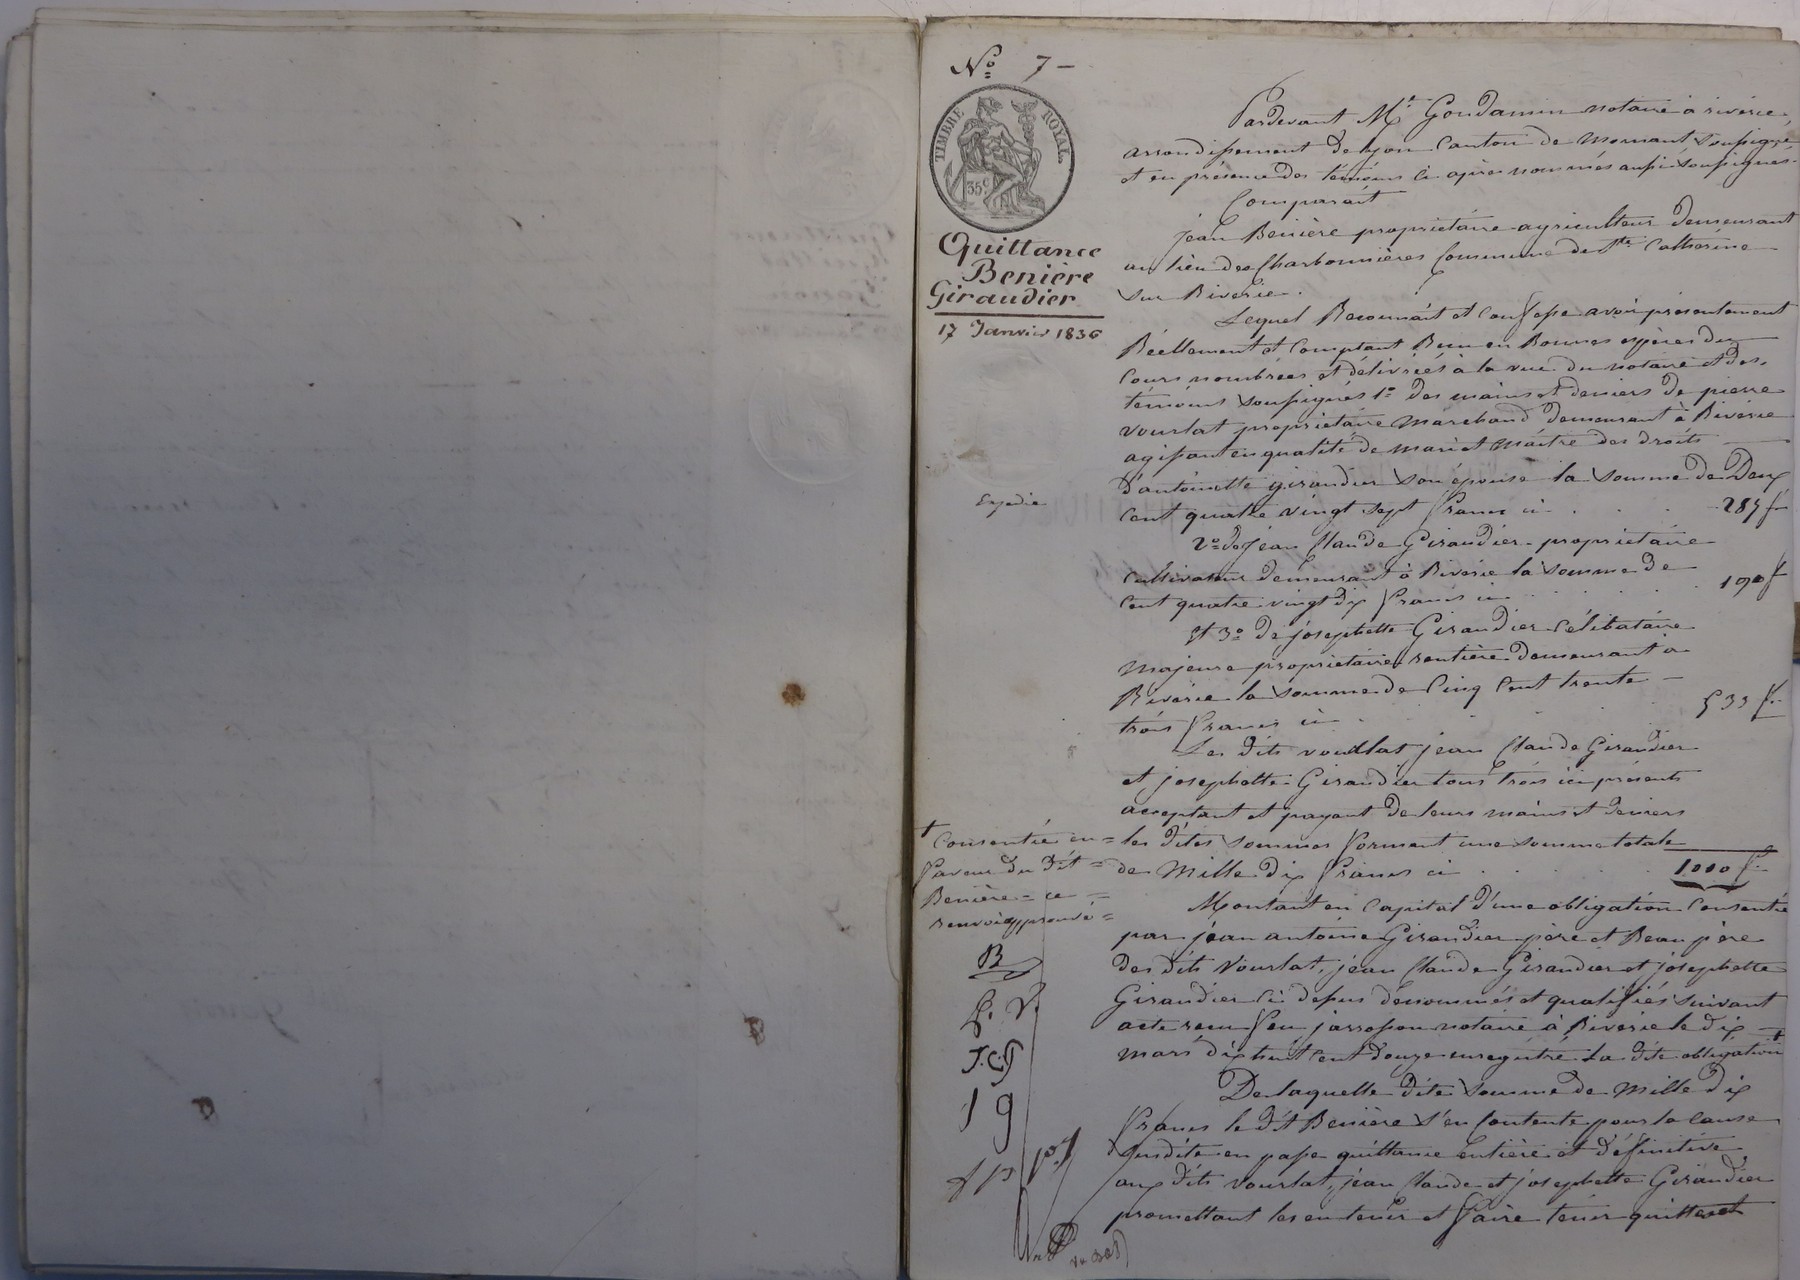 Nº 7 -
TIMBRE ROYAL
35 c
Quittance
Benière
Giraudier
17 Janvier 1836
Expédié
Pardevant Me Goudamin notaire à riverie,
arrondissement de Lyon Canton de Mornant soussigné
et en présence des témoins ci après nommés aussi soussignés
Comparait
jean Benière propriétaire agriculteur demeurant
au lieu des Charbonnières Commune de Ste Catherine
sur Riverie.
Lequel Reconnait et Confesse avoir présentement
Réellement et Comptant Reçu en Bonnes espèces du
Cours nombrées et délivrées à la vue du notaire et des
témoins soussignés 1º des mains et deniers de pierre
vourlat propriétaire marchand demeurant à Riverie
agissant en qualité de mari et maître des droits
d'antoinette giraudier son épouse la somme de Deux
Cent quatre vingt sept francs ci . . . 287 f
2º de jean Claude Giraudier propriétaire
Cultivateur demeurant à Riverie la somme de
Cent quatre vingt dix francs ci . . . 190 f
Et 3º de josephette Giraudier Célibataire
majeure propriétaire rentière demeurant à
Riverie la somme de Cinq Cent trente
trois francs ci . . . 533 f
Les dits vourlat jean Claude Giraudier
et josephette Giraudier tous trois ici présents
acceptant et payant de leurs mains et deniers
les dites sommes forment une somme totale
de Mille dix francs ci . . . 1010 f
Montant en Capital d'une obligation Consentie
par jean antoine Giraudier père et Beau père
des dits Vourlat, jean Claude Giraudier et josephette
Giraudier ci dessus dénommés et qualifiés suivant
acte reçu feu jarrosson notaire à Riverie le dix
mars dix huit cent douze enregistré. La dite obligation +
De laquelle dite somme de mille dix
francs le dit Benière s'en Contente pour la cause
susdite en passe quittance entière et définitive
aux dits vourlat, jean Claude et josephette Giraudier
promettant les en tenir et faire tenir quittes et
+ Consentie en =
faveur du dit =
Benière = ce =
renvoi approuvé =
B
P. V.
J.C.G
J g